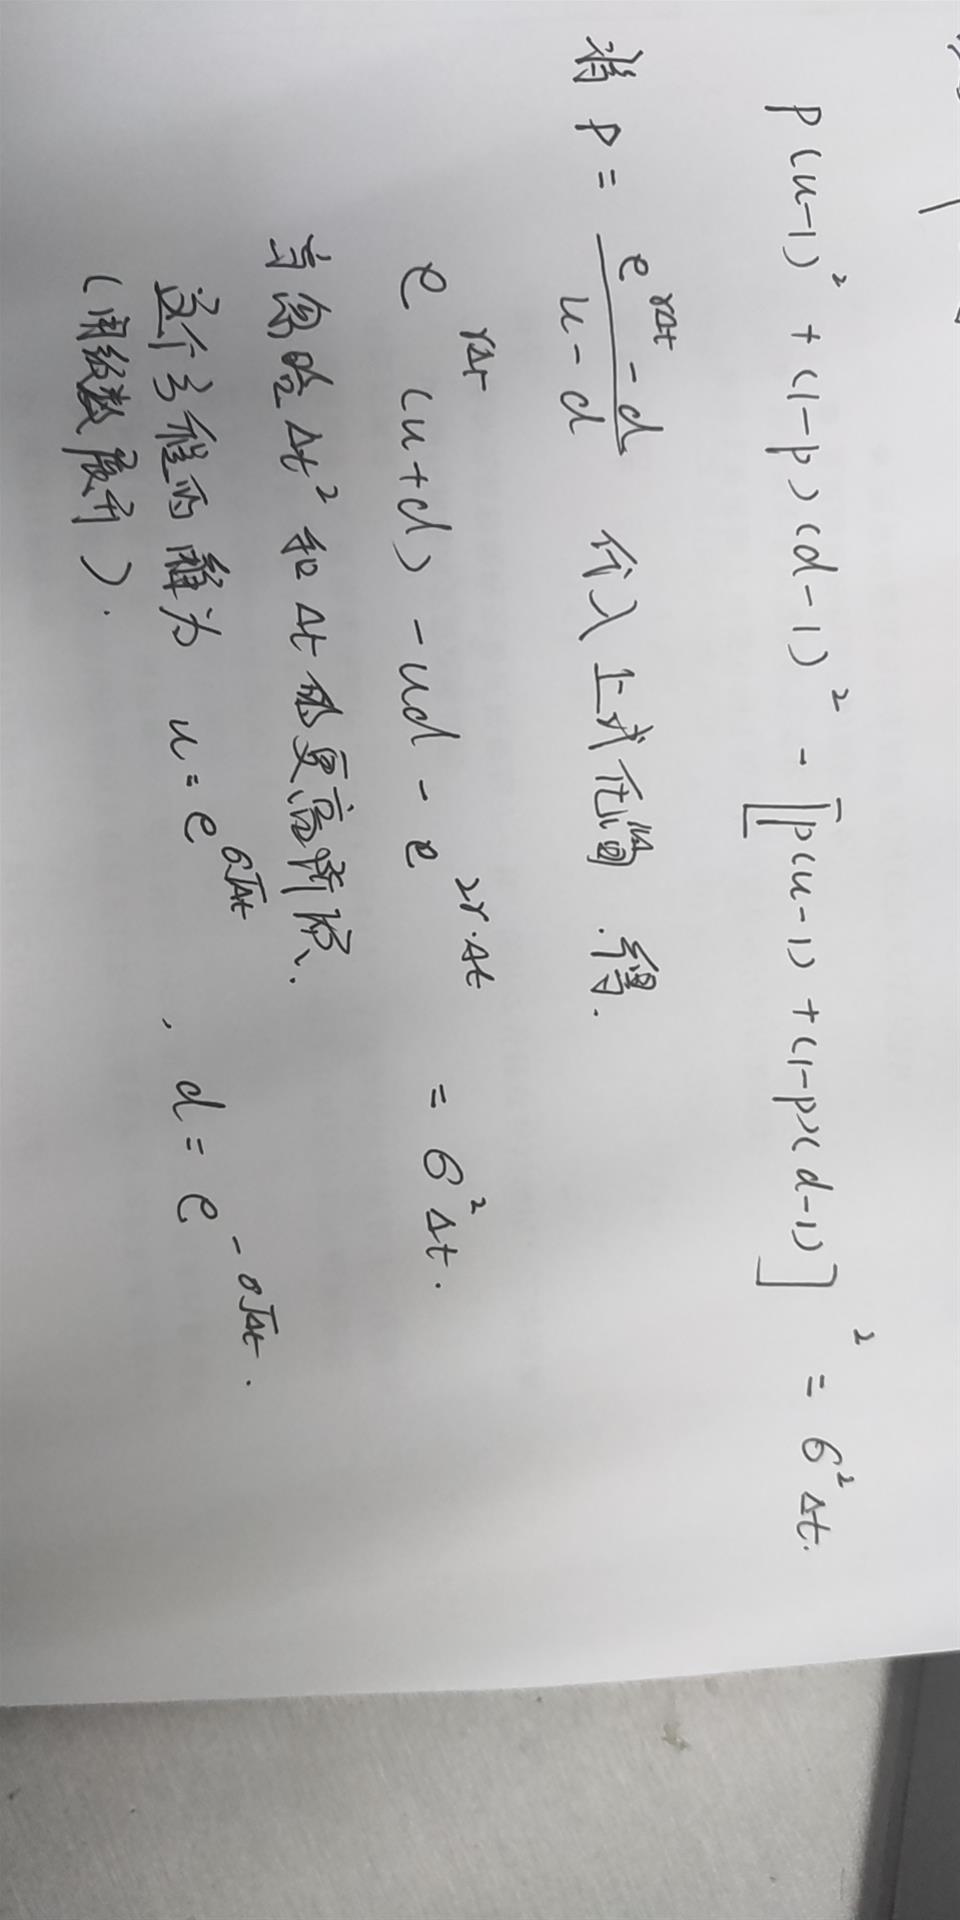 p(u-1)² + (1-p)(d-1)² - [p(u-1) + (1-p)(d-1)]² = σ²Δt.
将 p = (e^{rΔt} - d)/(u - d) 代入上式化简.得.
e^{rΔt}(u+d) - ud - e^{2r·Δt} = σ²Δt.
当忽略Δt²和Δt的更高阶项.
这个方程的解为 u = e^{σ√Δt}, d = e^{-σ√Δt}.
(用级数展开).